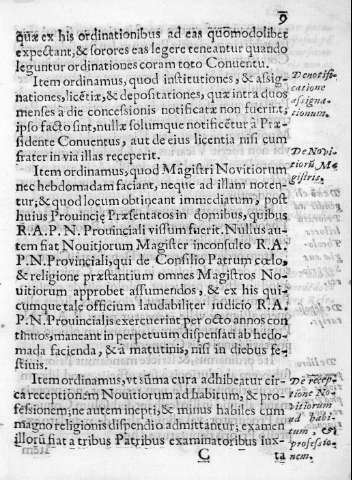 9
quæ ex his ordinationibus ad eas quomodolibet
expectant, & sorores eas legere teneantur quando
leguntur ordinationes coram toto Conuentu.
Item ordinamus, quod institutiones, & assig-
nationes, licẽtiæ, & depositationes, quæ intra duos
menses à die concessionis notificatæ non fuerint;
ipso facto sint, nullæ solumque notificẽtur à Præ-
sidente Conuentus, aut de eius licentia nisi cum
frater in via illas receperit.
De notifi-
catione
assigna-
tionum.
Item ordinamus, quod Magistri Novitiorum
nec hebdomadam faciant, neque ad illam noten-
tur; & quod locum obtineant immediatum, post
huius Provincię Præsentatos in domibus, quibus
R. A. P. N. Provinciali vissum fuerit. Nullus au-
tem fiat Nouitjorum Magister inconsulto R. A.
P. N. Provinciali, qui de Consilio Patrum cœlo,
& religione præstantium omnes Magistros No-
uitiorum approbet assumendos, & ex his qui-
cumque tale officium laudabiliter iudicio R. A.
P. N. Provincialis exercuerint per octo annos con-
tinuos, maneant in perpetuum dispensati ab hedo-
mada facienda, & à matutinis, nisi in diebus fe-
stiuis.
De Novi-
tiorũ Ma-
gistris.
Item ordinamus, vt sũma cura adhibeatur cir-
ca receptionem Novitiorum ad habitum, & pro-
fessionem; ne autem inepti, & minus habiles cum
magno religionis dispendio admittantur; examen
illorũ fiat a tribus Patribus examinatoribus iux-
De recep-
tione No-
vitiorum
ad habi-
tum, & 
professio-
nem.
C
ta